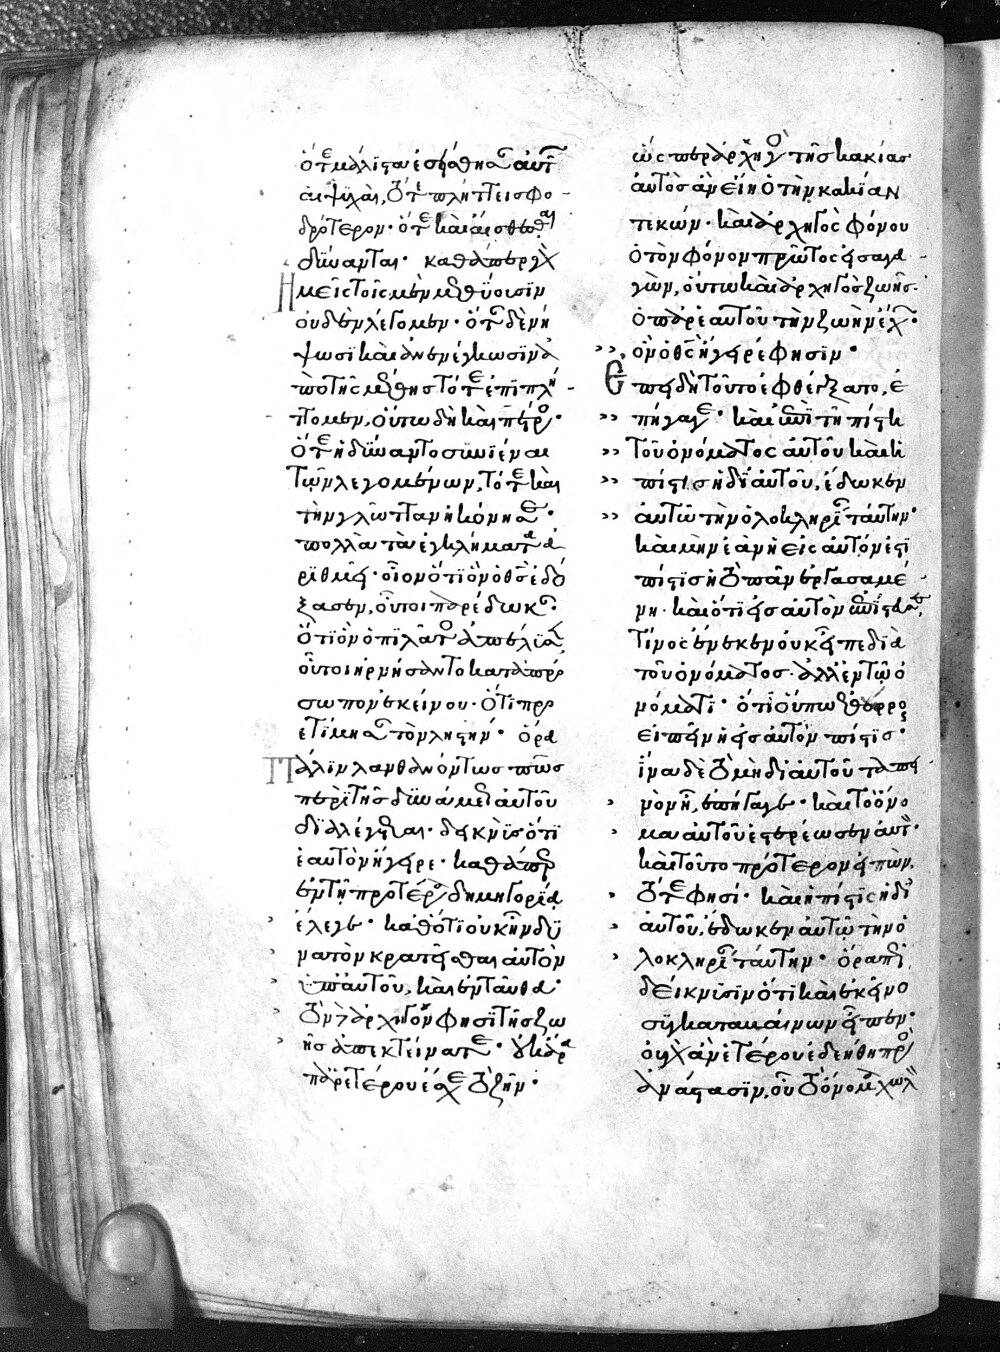 ὅτε μάλιστα ἐσπάθησαν αὐτῶν
αἱ ψυχαὶ, τότε πλήττει σφο-
δρότερον· ὅτε καὶ αἰσθέσθαι
δύνανται· καθάπερ γὰρ
ἡμεῖς τοῖς μὲν μεθύουσιν
οὐδὲν λέγομεν· ὅταν δὲ νή
ψωσι καὶ ἀνενέγκωσιν ἀ
πὸ τῆς μέθης τότε ἐπιπλή-
ττομεν, οὕτω δὴ καὶ πέτρος·
ὅτε ἠδύναντο συνϊέναι
τῶν λεγομένων, τότε καὶ
τὴν γλῶτταν ἠκόνησεν·
πολλὰ τὰ ἐγκλήματα ἀ
ριθμεῖ· οἷον ὅτι ὃν ὁ θεὸς ἐδό
ξασεν, οὗτοι παρέδωκαν·
ὅτι ὃν ὁ πιλᾶτος ἀπέλυσεν
οὗτοι ἠρνήσαντο κατὰ πρό
σωπον ἐκείνου· ὅτι προ
ετίμησαν τὸν λῃστήν· ὅρα
Πάλιν λανθανόντως πῶς
περὶ τῆς δυνάμεως αὐτοῦ
διαλέγεται· δεικνὺς ὅτι
ἑαυτὸν ἤγειρε· καθάπερ
ἐν τῇ προτέρᾳ δημηγορίᾳ
ἔλεγε· καθότι οὐκ ἦν δυ
νατὸν κρατεῖσθαι αὐτὸν
ὑπ' αὐτοῦ, καὶ ἐνταῦθα·
τὸν δὲ ἀρχηγόν φησι τῆς ζω
ῆς ἀπεκτείνατε· οὐκ ἄρα
παρ' ἑτέρου ἔσχε τὸ ζῆν·
ὡς περ ἀρχηγὸς τῆς κακίας
αὐτὸς ἂν εἴη ὁ τὴν κακίαν
τεκών· καὶ ἀρχηγὸς φόνου
ὁ τὸν φόνον πρῶτος εἰσαγα-
γών, οὕτω καὶ ἀρχηγὸς ζωῆς
ὁ παρ' ἑαυτοῦ τὴν ζωὴν ἔχων·
ὃν ὁ θεὸς ἤγειρε φησὶν·
Ἐπειδὴ τοῦτο ἐφθέγξατο, ἐ
πήγαγε· καὶ ἐπὶ τῇ πίστει
τοῦ ὀνόματος αὐτοῦ καὶ ἡ
πίστις ἡ δι' αὐτοῦ, ἔδωκεν
αὐτῷ τὴν ὁλοκληρίαν ταύτην·
καὶ μὴν ἐὰν ἡ εἰς αὐτόν ἐστι
πίστις ἡ τὸ πᾶν ἐργασαμέ-
νη· καὶ ὅτι εἰς αὐτὸν ἐπίστευσας,
τίνος ἕνεκεν οὐκ εἶπε διὰ
τοῦ ὀνόματος· ἀλλ' ἐν τῷ ὀ
νόματι· ὅτι οὔπω ἐθάρρο
εἰπεῖν ἡ εἰς αὐτὸν πίστις·
ἵνα δὲ τὸ μὴ δι' αὐτοῦ ταπει
νὸν ᾖ, ἐπήγαγε· καὶ τὸ ὄνο
μα αὐτοῦ ἐστερέωσεν αὐτόν·
καὶ τοῦτο πρότερον εἰπὼν,
τότε φησί· καὶ ἡ πίστις ἡ δι'
αὐτοῦ, ἔδωκεν αὐτῷ τὴν ὁ
λοκληρίαν ταύτην· ὅρα πῶς
δείκνυσιν ὅτι καὶ ἐκεῖνο
συγκαταβαίνων εἶπεν·
οὐχ ἂν ἑτέρου ἐδεήθη πρὸς
ἀνάστασιν, οὗ τὸ ὄνομα χωλὸν